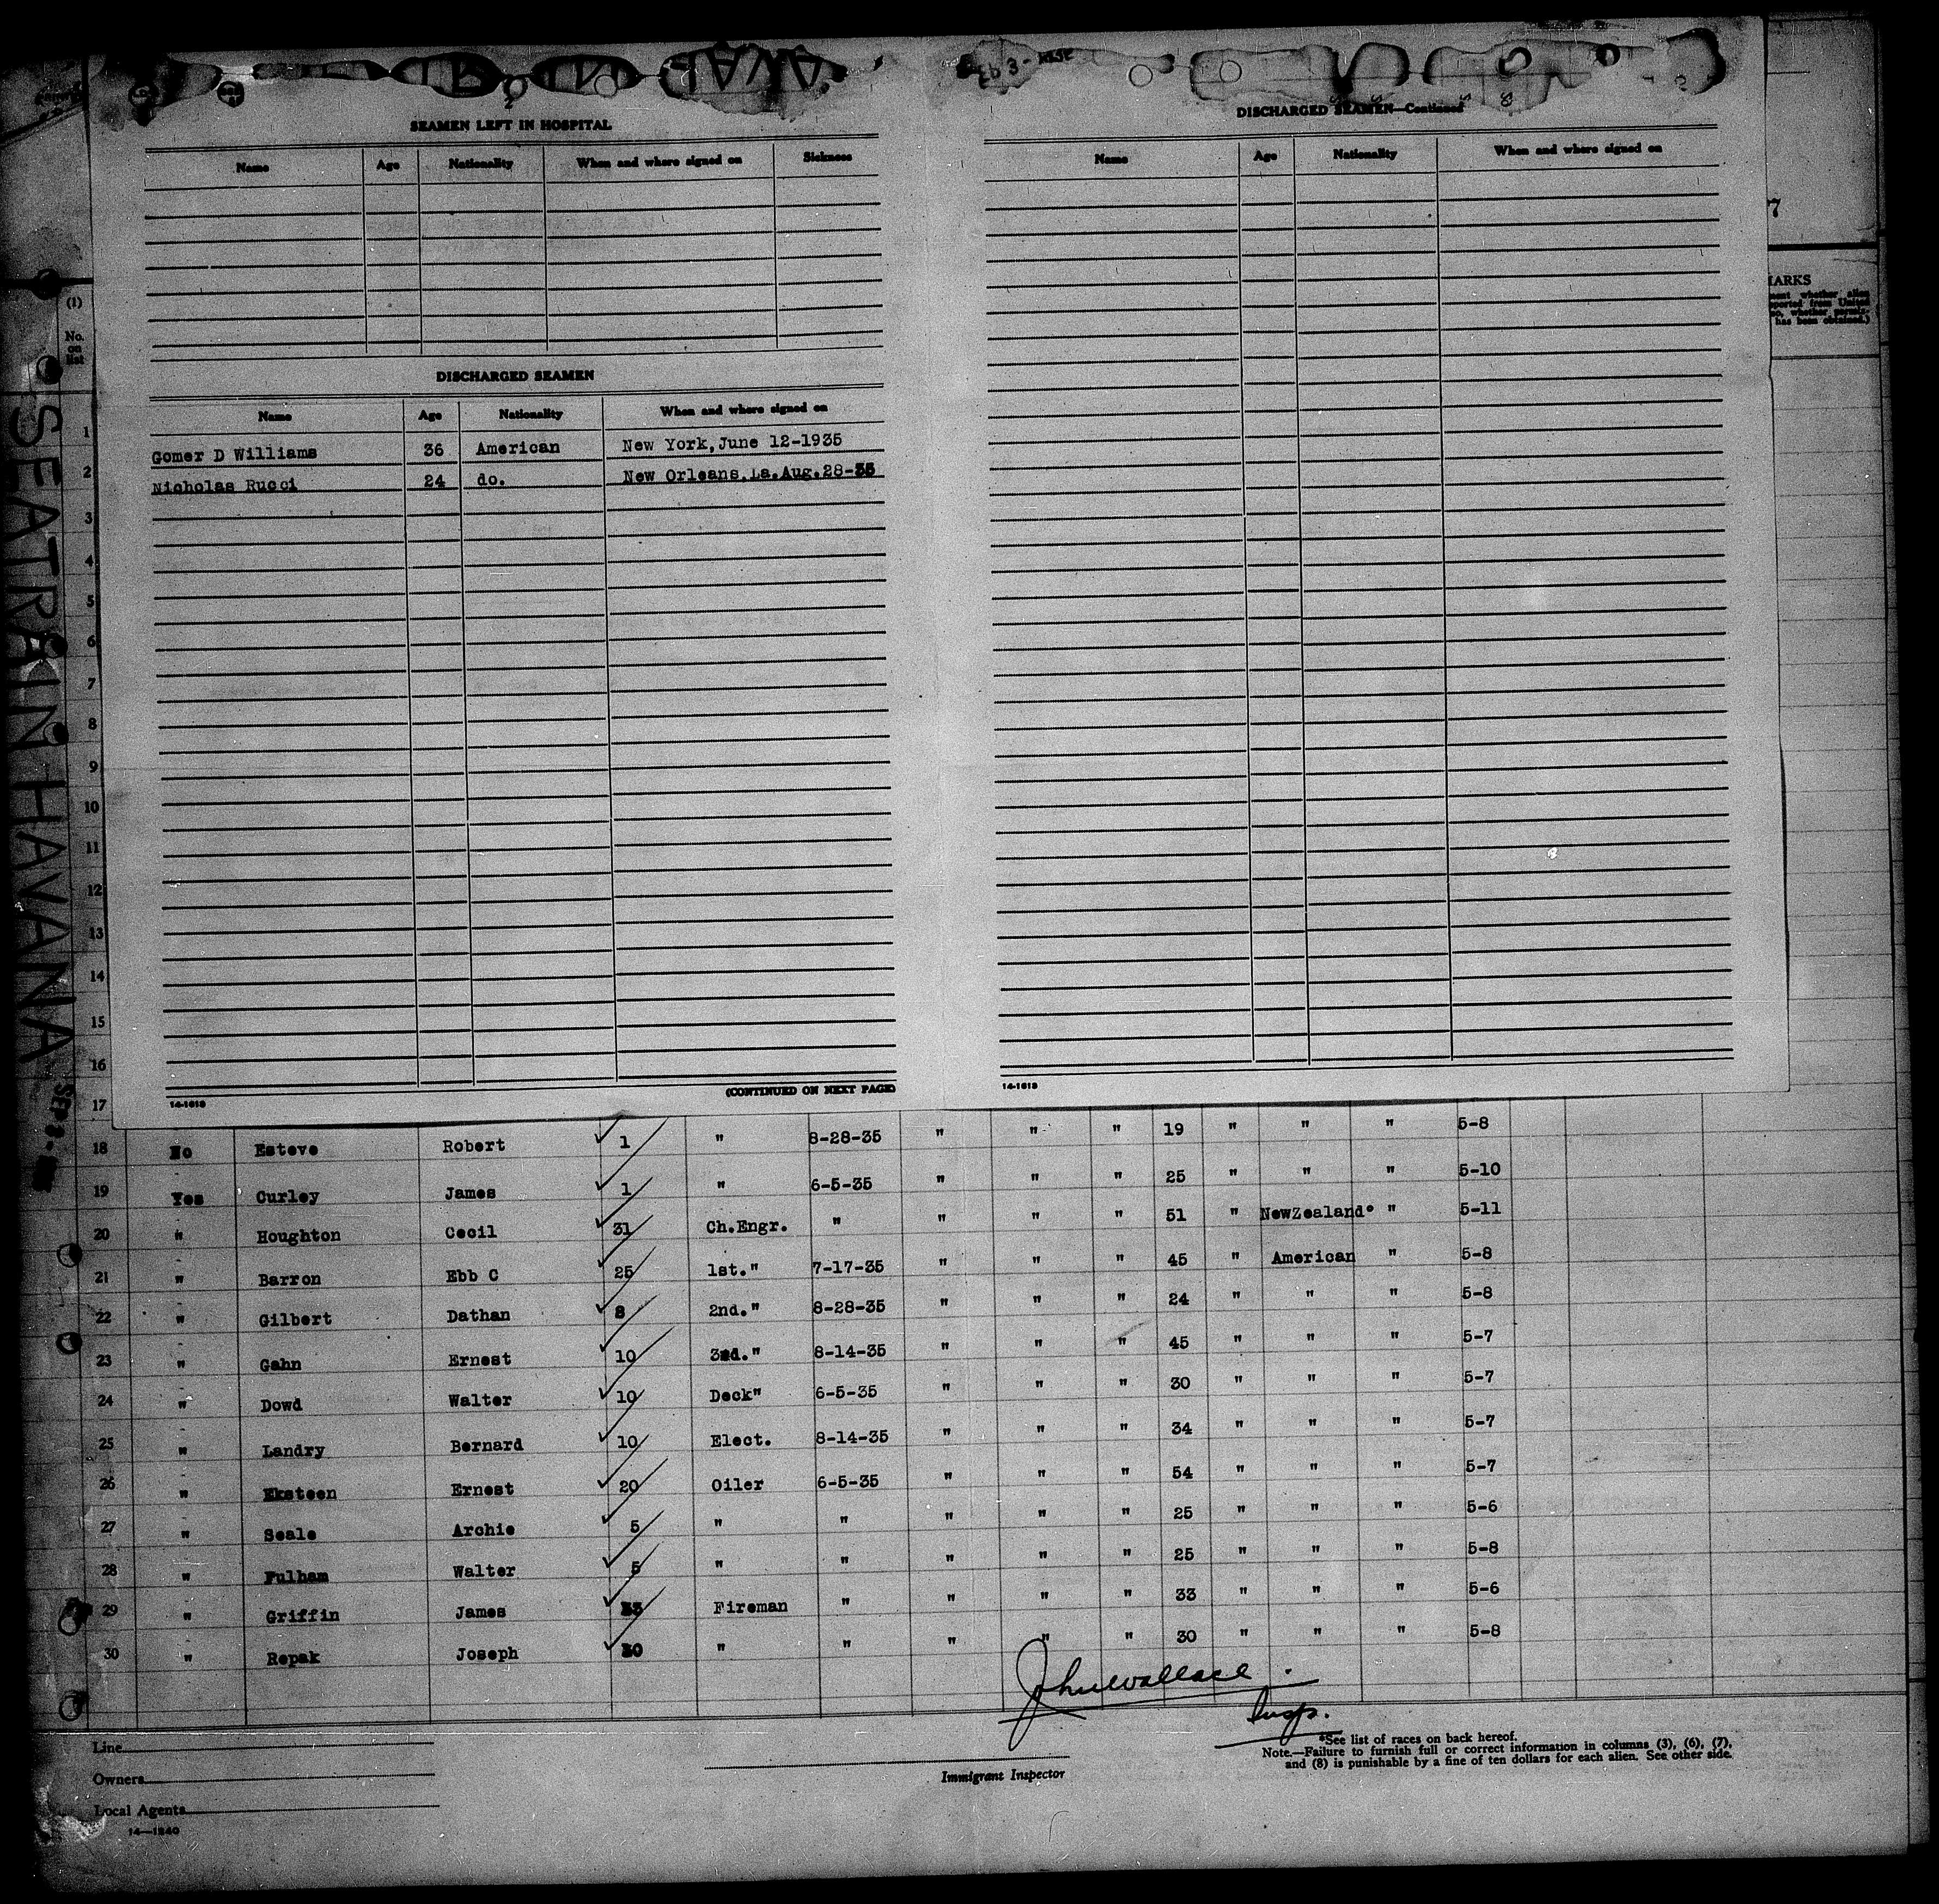 SEAMEN LEFT IN HOSPITAL
Name Age Nationality When and where signed on Sickness
DISCHARGED SEAMEN
Name Age Nationality When and where signed on
Gomer D Williams 36 American New York,June 12-1935
Nicholas Rucci 24 do. New Orleans,La.Aug.28-35
(CONTINUED ON NEXT PAGE)
14-1613
DISCHARGED SEAMEN—Continued
Name Age Nationality When and where signed on
14-1613
7
MARKS
whether alien
ported from United
so, whether permis-
has been obtained.)
SEATRAIN HAVANA
SEP 3-
(1)
No.
on
list
1
2
3
4
5
6
7
8
9
10
11
12
13
14
15
16
17
18 No Esteve Robert 1 " 8-28-35 " " " 19 " " " 5-8
19 Yes Curley James 1 " 6-5-35 " " " 25 " " " 5-10
20 " Houghton Cecil 31 Ch.Engr. " " " " 51 " NewZealand* " 5-11
21 " Barron Ebb C 25 1st." 7-17-35 " " " 45 " American " 5-8
22 " Gilbert Dathan 8 2nd." 8-28-35 " " " 24 " " " 5-8
23 " Gahn Ernest 10 3rd." 8-14-35 " " " 45 " " " 5-7
24 " Dowd Walter 10 Deck" 6-5-35 " " " 30 " " " 5-7
25 " Landry Bernard 10 Elect. 8-14-35 " " " 34 " " " 5-7
26 " Eksteen Ernest 20 Oiler 6-5-35 " " " 54 " " " 5-7
27 " Seale Archie 5 " " " " " 25 " " " 5-6
28 " Fulham Walter 5 " " " " " 25 " " " 5-8
29 " Griffin James Fireman " " " " 33 " " " 5-6
30 " Repak Joseph " " " " " 30 " " " 5-8
John Wallace
Insp.
Line
Owners
Local Agents
14—1240
Immigrant Inspector
*See list of races on back hereof.
Note.—Failure to furnish full or correct information in columns (3), (6), (7),
and (8) is punishable by a fine of ten dollars for each alien. See other side.